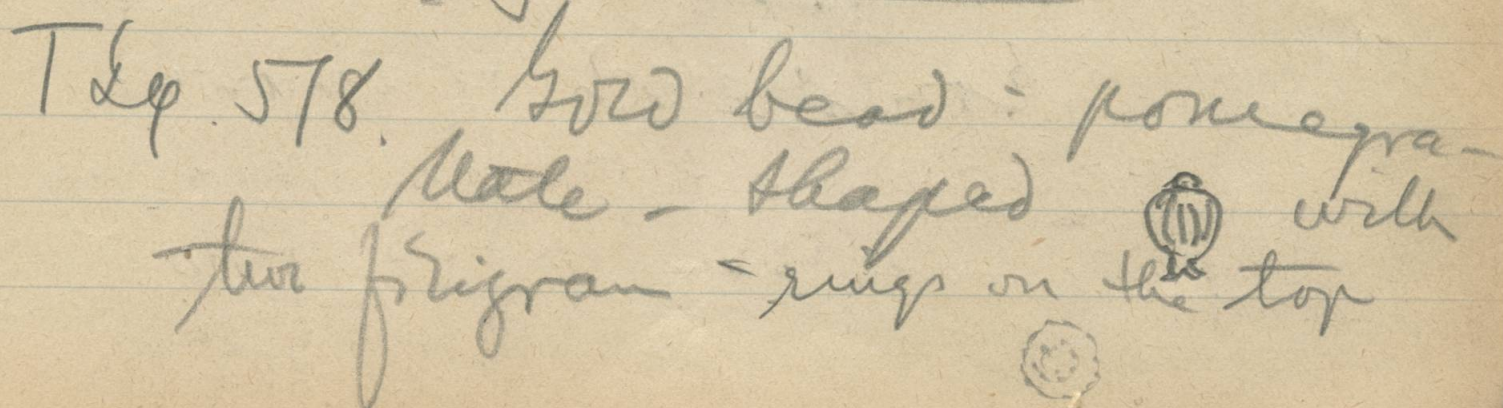 578. Gold bead: pomegra-
nate-shaped with
two filigran-rings on the top